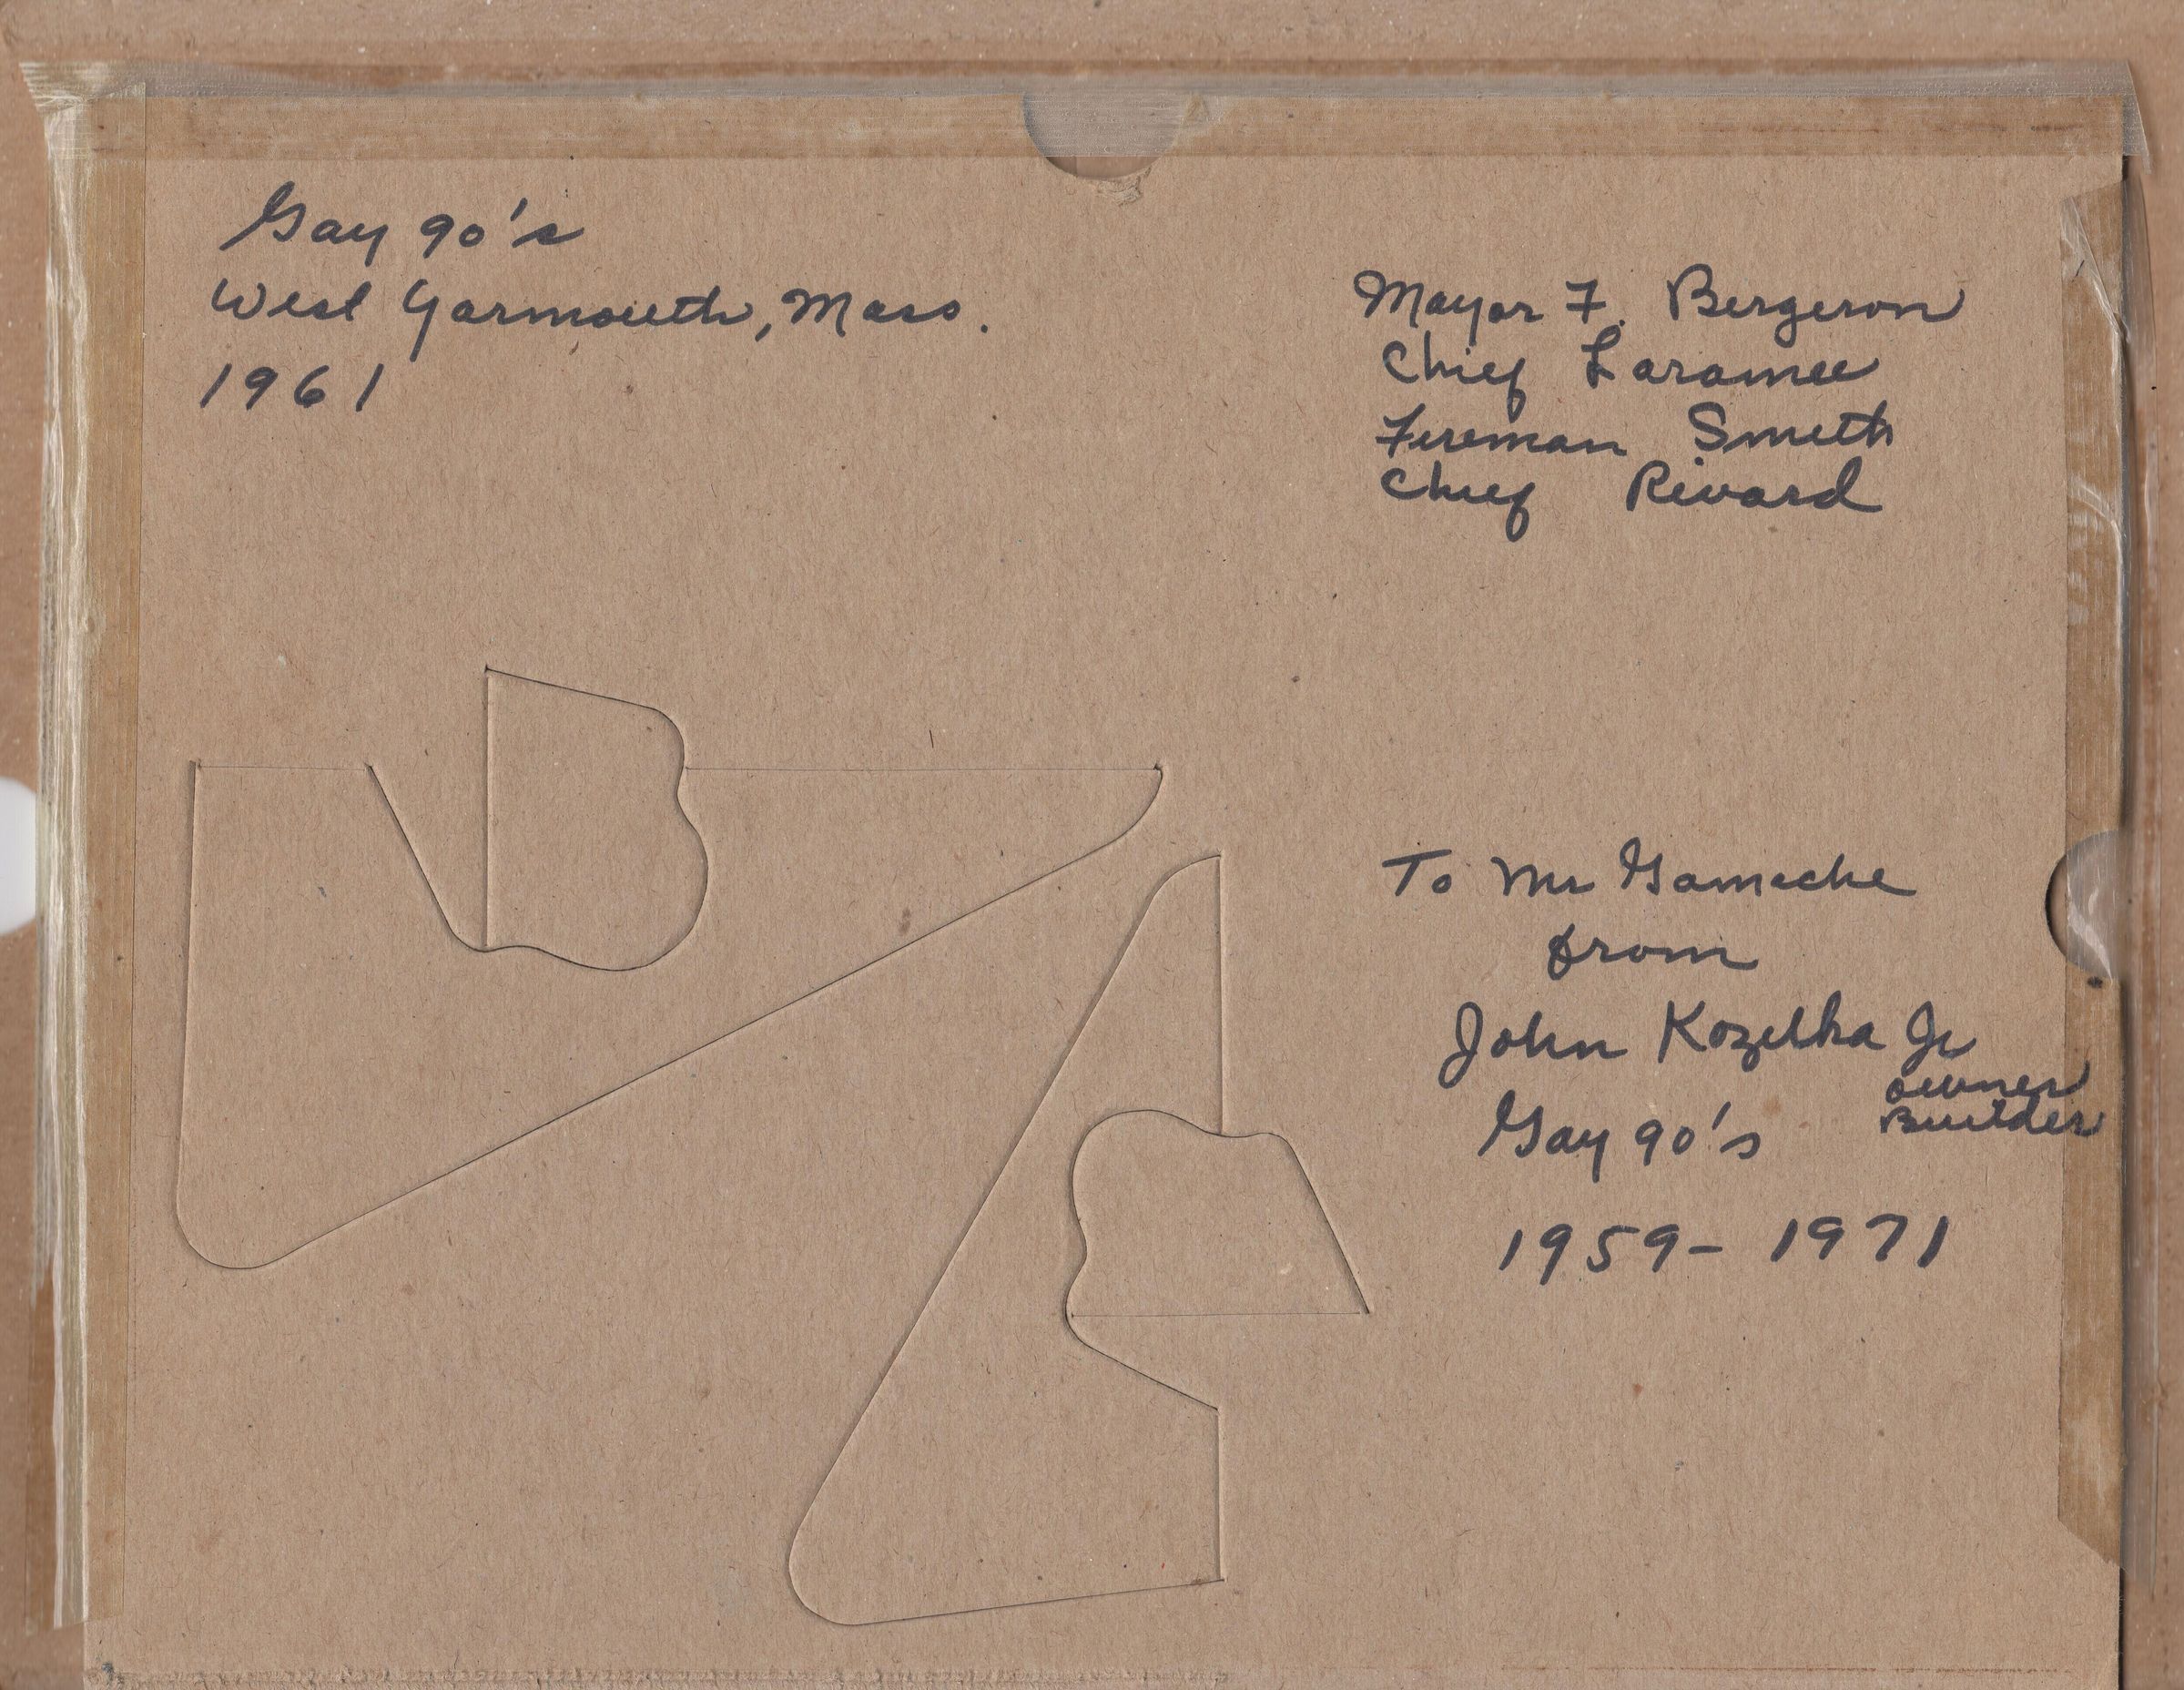 Gay 90's
West Yarmouth, Mass.
1961
Mayor F. Bergeron
Chief Laramee
Fireman Smith
Chief Rivard
To Mr Gamache
from
John Kozelka Jr
owner
Builder
Gay 90's
1959 - 1971